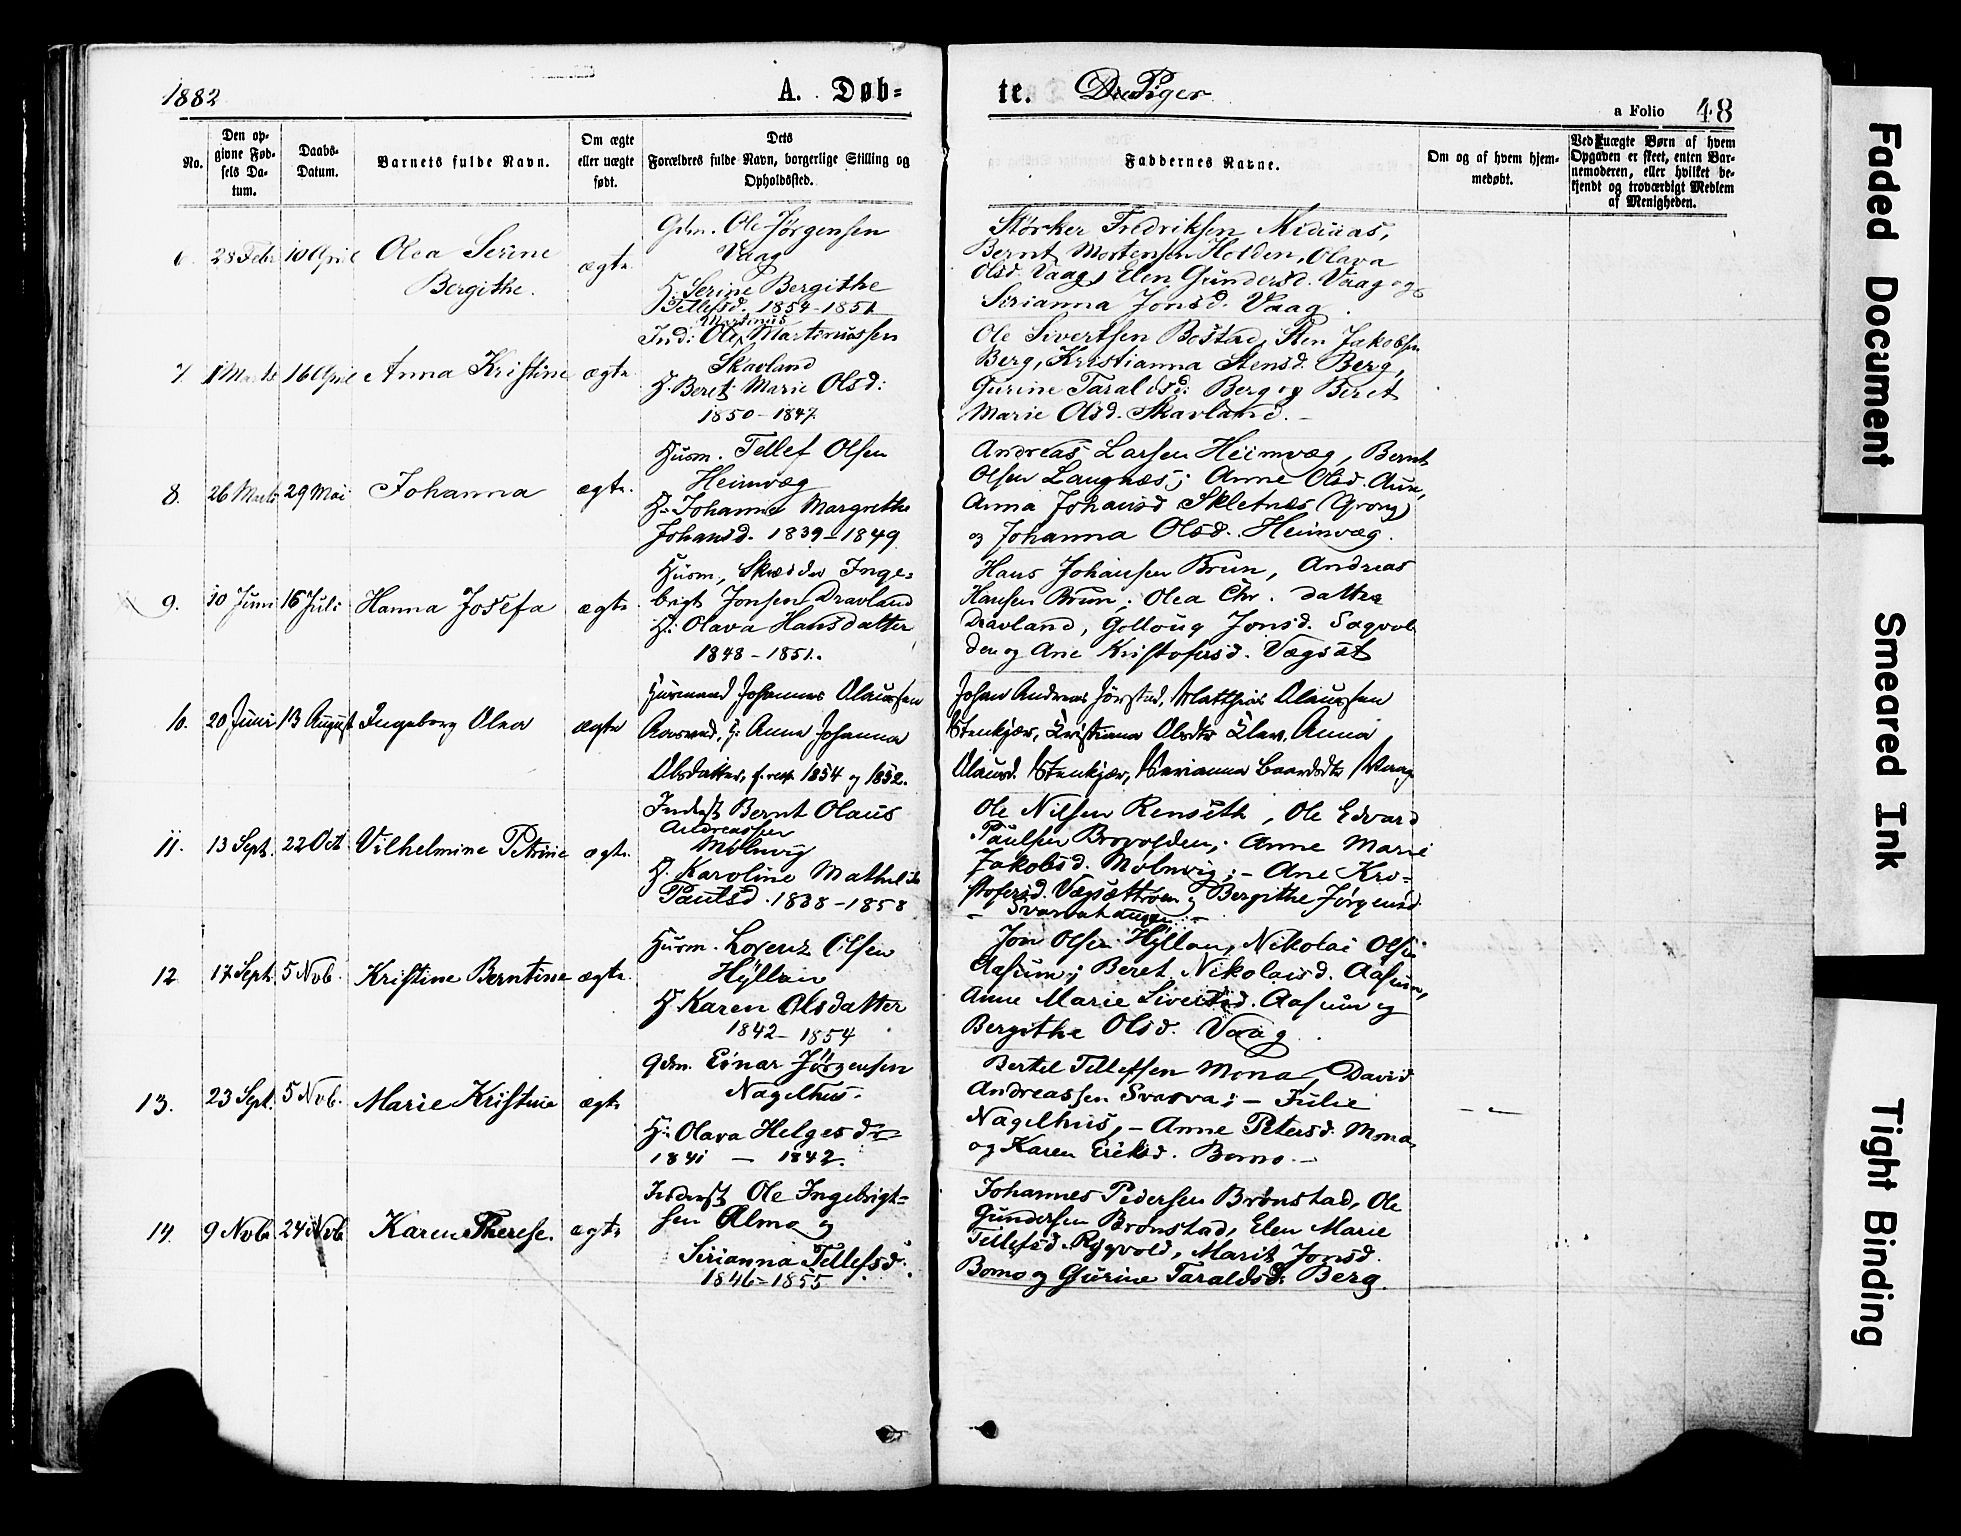 1882
A. Døb=
te. Piger
a Folio 48
No.
Den op-
givne Fød-
sels Da-
tum.
Daabs-
Datum.
Barnets fulde Navn.
Om ægte
eller uægte
født.
Dets
Forældres fulde Navn, borgerlige Stilling og
Opholdssted.
Faddernes Navne.
Om og af hvem hjem-
medøbt.
Ved uægte Børn af hvem
Opgaven er skeet, enten Bar-
nemoderen, eller hvilket be-
kjendt og troværdigt Medlem
af Menigheden.
6. 28 Febr 10 April Olea Serine
Bergithe.
ægte
Gdm. Ole Jørgensen
Vaag
H. Serine Bergithe
Tellefsd. 1854-1851
Størker Fredriksen Midtiaas,
Bernt Mortensen Holden, Olava
Olsd. Vaag, Elen Gundersd. Vaag og
Sirianna Jonsd. Vaag.
7. 1 Marts 16 April Anna Kristine ægte
Martinus
Ind: Ole Martinussen
Skavland
H. Beret Marie Olsd:
1850-1847
Ole Sivertsen Bostad, Sten Jakobsen
Berg, Kristianna Stensd. Berg,
Gurine Taraldsd: Berg og Beret
Marie Olsd. Skavland.-
8. 26 Marts 29 Mai Johanna ægte.
Husm. Tellef Olsen
Heimvæg
H. Johanna Margrethe
Johansd. 1839-1849
Andreas Larsen Heimvæg, Bernt
Olsen Langnæs; Anne Olsd. Aune,
Anna Johansd Skletnæs (Grong)
og Johanna Olsd. Heimvæg.
9. 10 Juni 16 Juli Hanna Josefa ægte.
Husm, Skrædder Inge=
brigt Jonsen Dravland
H: Olava Hansdatter
1848-1851.
Hans Johansen Brun, Andreas
Hansen Brun; Olea Chr. datter
Dravland, Golloug Jonsd. Sagvol
den og Ane Kristofersd. Vægsæt
10. 20 Juni 13 August Ingeborg Olea ægte
Husmand Johannes Olaussen
H: Anna Johanna
Olsdatter, f. resp. 1854 og 1852.
Johan Andreas Jørstad, Matthias Olaussen
Stenkjær, Kristianna Olsdtr Anna
Olausd. Stenkjær, Marianna Baardsdtr
11. 13 Sept. 22 Oct Vilhelmine Petrine ægte.
Inderst Bernt Olaus
Andreassen
Mølnvig
H. Karoline Mathilde
Paulsd. 1838-1858
Ole Nilsen Renseth, Ole Edvard
Paulsen Brovolden;. Anne Marie
Jakobsd. Mølnvig;- Ane Kri=
stofersd. Vægsættrøen og Bergithe Jørgensd
12 17 Sept. 5 Nvb. Kristine Berntine ægte.
Husm. Lorents Olsen
Hyllan
H Karen Olsdatter
1842-1854
Jon Olsen Hyllan, Nikolai Olsen
Aasum; Beret Nikolaisd. Aasum,
Anne Marie Sivertsd. Aasum og
Bergithe Olsd. Vaag.
13. 23 Sept. 5 Nvb. Marie Kristine ægte
Gdm. Einar Jørgensen
Nagelhus.
H: Olava Helgesdtr
1841 — 1842.
Bertel Tellefsen Mona, David
Andreassen Svarva;- Julie
Nagelhus,- Anne Petersd. Mona
og Karen Eriksd. Bomo.-
14. 9 Nvbr 24 Nvb. Karen Therese. ægte
Inderst Ole Ingebrigt=
sen Almo og
Sirianna Tellefsd.
1846-1855
Johannes Pedersen Brønstad, Ole
Gundersen Brønstad, Elen Marie
Tellefsd. Rygvold, Marit Jonsd.
Bomo og Gurine Taraldsd: Berg.
Faded Document
Smeared Ink
Tight Binding